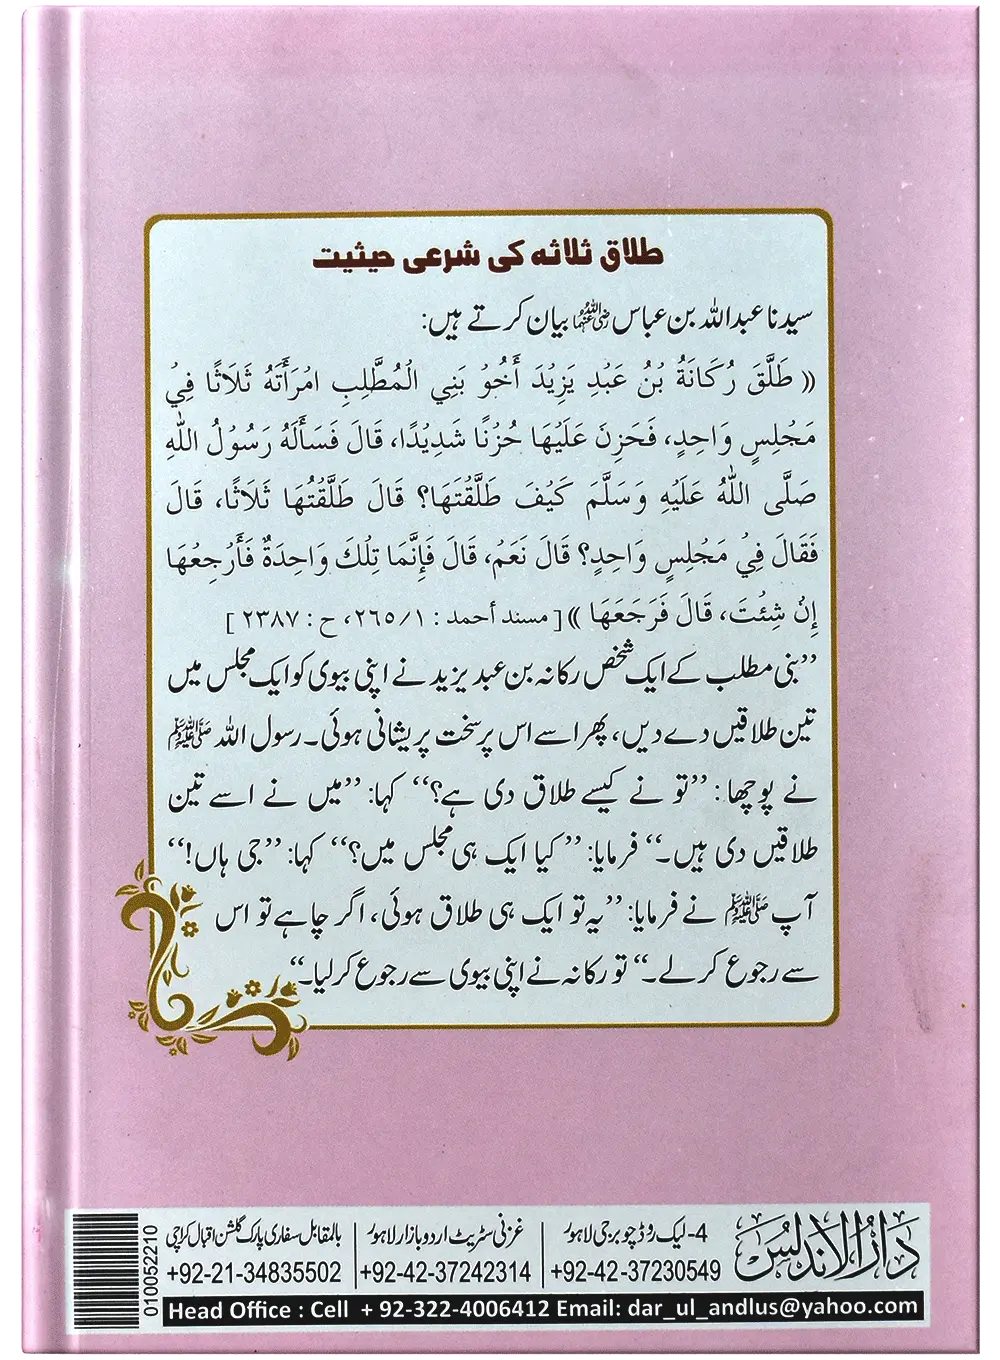 طلاق ثلاثہ کی شرعی حیثیت
سیدنا عبداللہ بن عباس رضی اللہ عنہما بیان کرتے ہیں:
« طَلَّقَ رُكَانَةُ بْنُ عَبْدِ يَزِيْدَ أَخُوْ بَنِي الْمُطَّلِبِ امْرَأَتَهُ ثَلَاثًا فِيْ
مَجْلِسٍ وَاحِدٍ، فَحَزِنَ عَلَيْهَا حُزْنًا شَدِيْدًا، قَالَ فَسَأَلَهُ رَسُوْلُ اللّٰهِ
صَلَّى اللّٰهُ عَلَيْهِ وَسَلَّمَ كَيْفَ طَلَّقْتَهَا؟ قَالَ طَلَّقْتُهَا ثَلَاثًا، قَالَ
فَقَالَ فِيْ مَجْلِسٍ وَاحِدٍ؟ قَالَ نَعَمْ، قَالَ فَإِنَّمَا تِلْكَ وَاحِدَةٌ فَأَرْجِعْهَا
إِنْ شِئْتَ، قَالَ فَرَجَعَهَا » [ مسند أحمد : ١/٢٦٥، ح : ٢٣٨٧ ]
”بنی مطلب کے ایک شخص رکانہ بن عبد یزید نے اپنی بیوی کو ایک مجلس میں
تین طلاقیں دے دیں، پھر اسے اس پر سخت پریشانی ہوئی۔ رسول اللہ ﷺ
نے پوچھا: ”تو نے کیسے طلاق دی ہے؟“ کہا: ”میں نے اسے تین
طلاقیں دی ہیں۔“ فرمایا: ”کیا ایک ہی مجلس میں؟“ کہا: ”جی ہاں!“
آپ ﷺ نے فرمایا: ”یہ تو ایک ہی طلاق ہوئی، اگر چاہے تو اس
سے رجوع کر لے۔“ تو رکانہ نے اپنی بیوی سے رجوع کر لیا۔“
دارالاندلس
4- لیک روڈ چوبرجی لاہور
+92-42-37230549
غزنی سٹریٹ اردو بازار لاہور
+92-42-37242314
بالمقابل سفاری پارک گلشن اقبال کراچی
+92-21-34835502
010052210
Head Office : Cell + 92-322-4006412 Email: dar_ul_andlus@yahoo.com